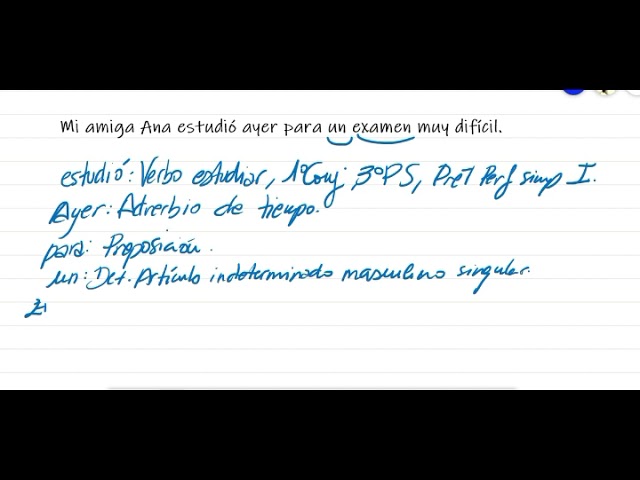 Mi amiga Ana estudió ayer para un examen muy difícil.
estudió: Verbo estudiar, 1ºConj 3ºPS, Pret Perf simp I.
Ayer: Adverbio de tiempo.
para: Preposición.
un: Det. Artículo indeterminado masculino singular.